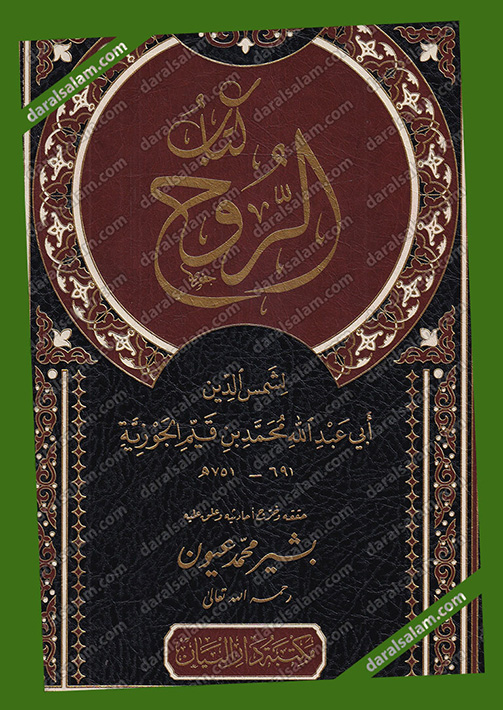 كتاب
الروح
لشمس الدين
أبي عبد الله محمد بن قيم الجوزية
٦٩١ - ٧٥١هـ
حققه وخرج أحاديثه وعلق عليه
بشير محمد عيون
رحمه الله تعالى
مكتبة دار البيان
daralsalam.com
daralsalam.com